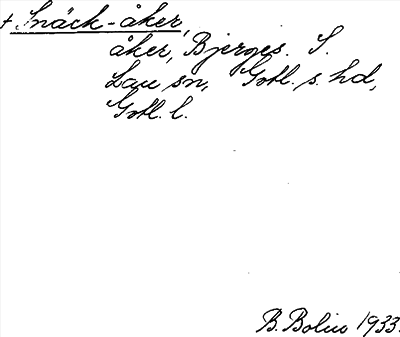 + Snäck-åker,
åker, Bjerges. S.
Lau sn, Gotl. s. hd,
Gotl. l.
B. Bolin 1933.